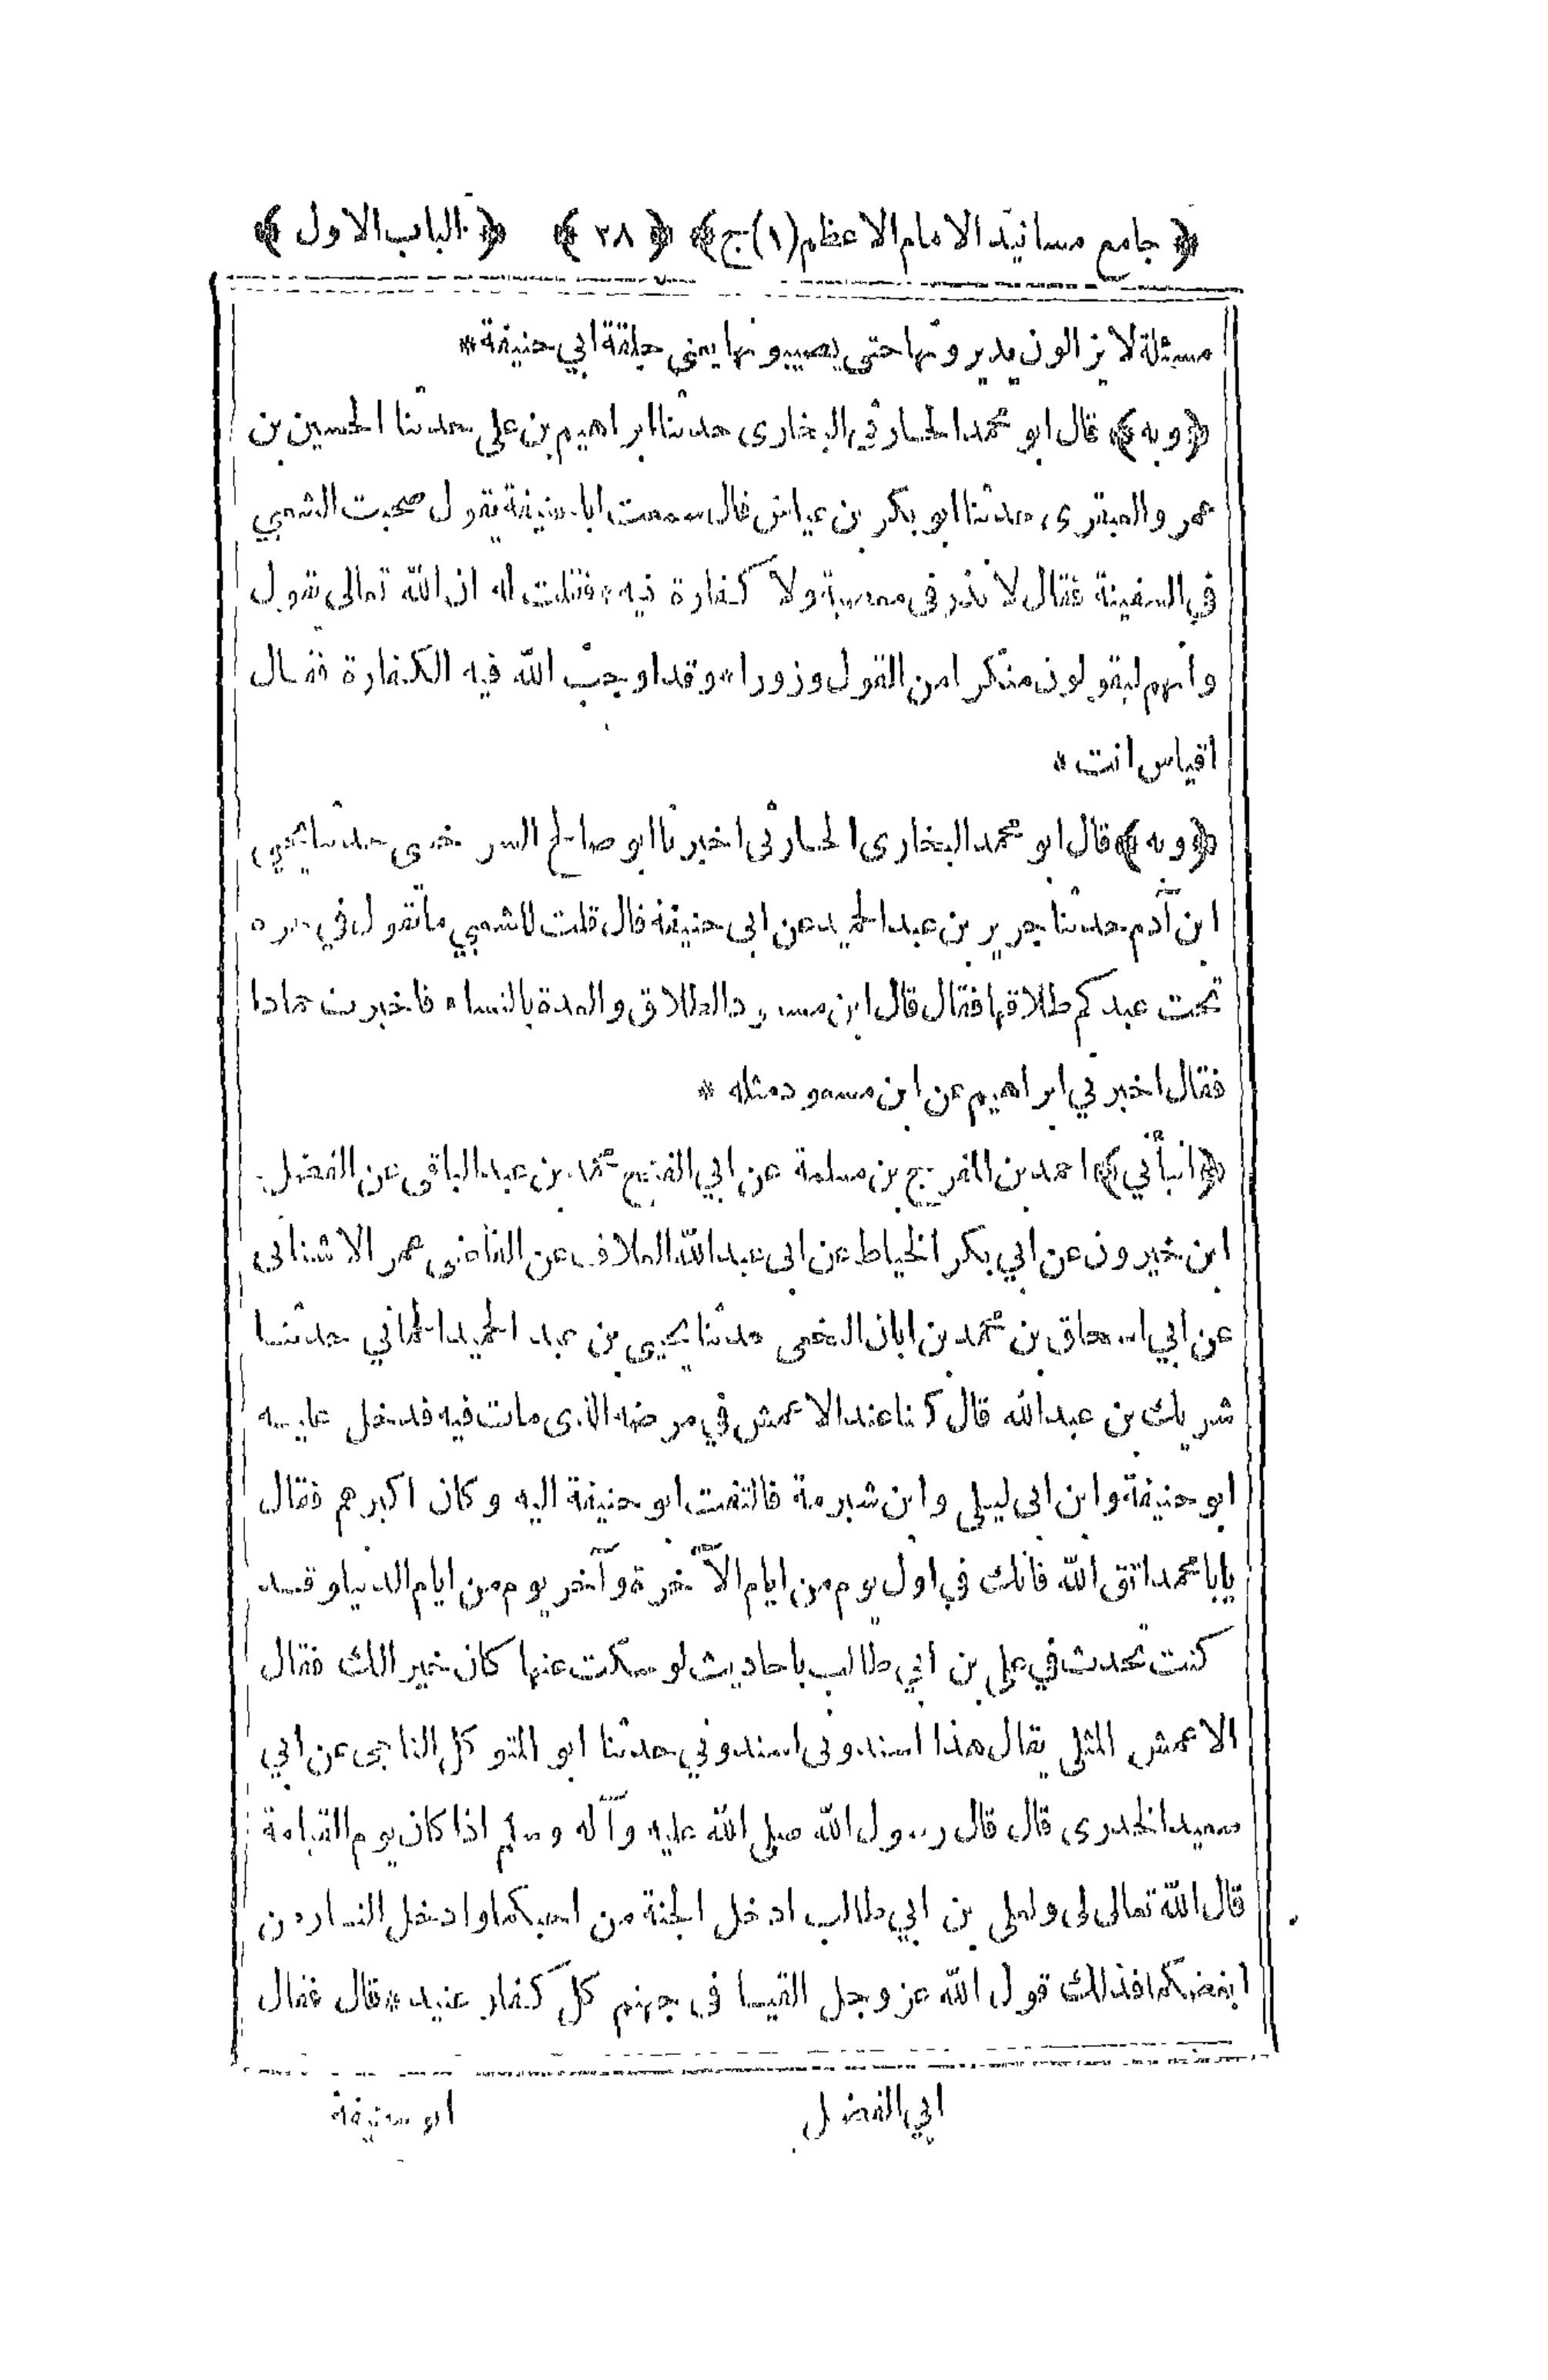 ﴿ جامع مسانيد الامام الاعظم (١) ج ﴾ ﴿ ٢٨ ﴾ ﴿ الباب الاول ﴾
مسئلة لا يزالون يديرونها حتى يصيبونها يعنى حلقة ابي حنيفة *
﴿ وبه ﴾ قال ابو محمد الحارثي البخارى حدثنا ابراهيم بن على حدثنا الحسين بن
عمرو العبقرى حدثنا ابو بكر بن عياش قال سمعت ابا حنيفة يقول صحبت الشعبي
في السفينة فقال لا نذر فى معصية ولا كفارة فيه فقلت له ان الله تعالى يقول
وانهم ليقولون منكرا من القول وزورا * وقد اوجب الله فيه الكفارة فقال
اقياس انت *
﴿ وبه ﴾ قال ابو محمد البخارى الحارثى اخبرنا ابو صالح السرخسى حدثنا يحيي
ابن آدم حدثنا جرير بن عبد الحميد عن ابى حنيفة قال قلت للشعبي ما تقول في حرة
تحت عبد كم طلاقها فقال قال ابن مسعود الطلاق والعدة بالنساء فاخبرت حمادا
فقال اخبرني ابراهيم عن ابن مسعود مثله *
﴿ انبأني ﴾ احمد بن المفرج بن مسلمة عن ابي الفتح محمد بن عبد الباقى عن الفضل
ابن خيرون عن ابي بكر الخياط عن ابى عبد الله العلاف عن القاضى عمر الاشنانى
عن ابي اسحاق بن محمد بن ابان النخعى حدثنا يحيى بن عبد الحميد الحماني حدثنا
شريك بن عبد الله قال كنا عند الاعمش في مرضه الذى مات فيه فدخل عليه
ابو حنيفة وابن ابى ليلى وابن شبرمة فالتفت ابو حنيفة اليه وكان اكبرهم فقال
يابا محمد اتق الله فانك في اول يوم من ايام الآخرة وآخر يوم من ايام الدنيا وقد
كنت تحدث في على بن ابي طالب باحاديث لو سكت عنها كان خيرا لك فقال
الاعمش المثلى يقال هذا اسندونى اسندوني حدثنا ابو المتوكل الناجى عن ابي
سعيد الخدرى قال قال رسول الله صلى الله عليه وآله وسلم اذا كان يوم القيامة
قال الله تعالى لى ولعلى بن ابي طالب ادخل الجنة من احبكما وادخل النار من
ابغضكما فذلك قول الله عز وجل القيا فى جهنم كل كفار عنيد * قال فقال
ابي الفضل
ابو حنيفة